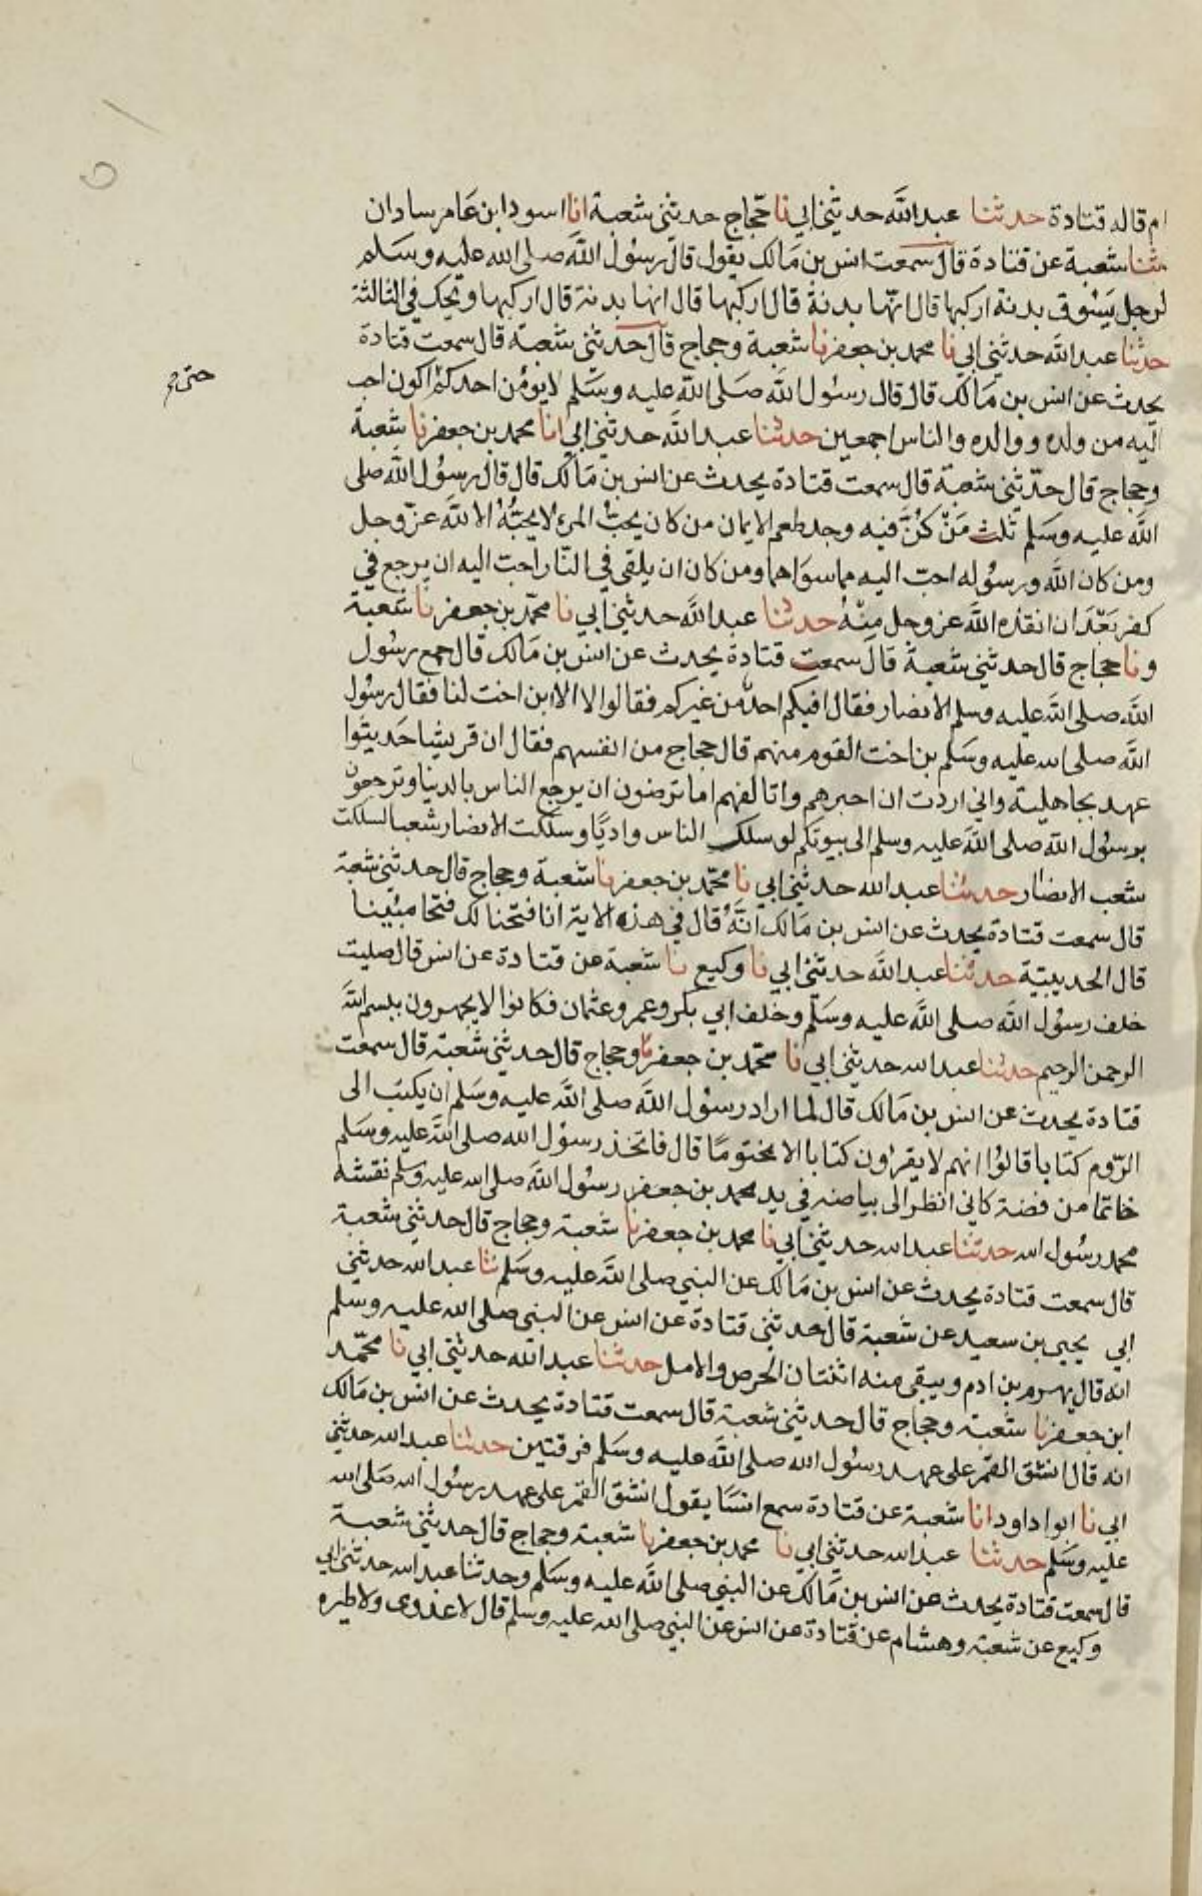 ام قاله قتادة حدثنا عبد الله حدثني ابي نا حجاج حدثني شعبة انا اسود ابن عامر سادان
ثنا شعبة عن قتادة قال سمعت انس بن مالك يقول قال رسول الله صلى الله عليه وسلم
لرجل يسوق بدنة اركبها قال انها بدنة قال اركبها قال انها بدنة قال اركبها ويحك في الثالثة
حدثنا عبد الله حدثني ابي نا محمد بن جعفر نا شعبة وحجاج قال حدثني شعبة قال سمعت قتادة
حتى
يحدث عن انس بن مالك قال قال رسول الله صلى الله عليه وسلم لايومن احدكم اكون احب
اليه من ولده ووالده والناس اجمعين حدثنا عبد الله حدثني ابي انا محمد بن جعفر نا شعبة
وحجاج قال حدثني شعبة قال سمعت قتادة يحدث عن انس بن مالك قال قال رسول الله صلى
الله عليه وسلم ثلث من كن فيه وجد طعم الايمان من كان يحب المرء لايحبه الا لله عز وجل
ومن كان الله ورسوله احب اليه مما سواهما ومن كان ان يلقى في النار احب اليه ان يرجع في
كفر بعد ان انقذه الله عز وجل منه حدثنا عبد الله حدثني ابي نا محمد بن جعفر نا شعبة
ونا حجاج قال حدثني شعبة قال سمعت قتادة يحدث عن انس بن مالك قال جمع رسول
الله صلى الله عليه وسلم الانصار فقال افيكم احد من غيركم فقالوا لا الا ابن اخت لنا فقال رسول
الله صلى الله عليه وسلم بن اخت القوم منهم قال حجاج من انفسهم فقال ان قريشا حديثوا
عهد بجاهلية واني اردت ان اجبرهم واتالفهم اما ترضون ان يرجع الناس بالدنيا وترجعون
برسول الله صلى الله عليه وسلم الى بيوتكم لو سلك الناس واديا وسلكت الانصار شعبا لسلكت
شعب الانصار حدثنا عبد الله حدثني ابي نا محمد بن جعفر نا شعبة وحجاج قال حدثني شعبة
قال سمعت قتادة يحدث عن انس بن مالك انه قال في هذه الاية انا فتحنا لك فتحا مبينا
قال الحديبية حدثنا عبد الله حدثني ابي نا وكيع نا شعبة عن قتادة عن انس قال صليت
خلف رسول الله صلى الله عليه وسلم وخلف ابي بكر وعمر وعثمان فكانوا لايجهرون ببسم الله
الرحمن الرحيم حدثنا عبد الله حدثني ابي نا محمد بن جعفر نا وحجاج قال حدثني شعبة قال سمعت
قتادة يحدث عن انس بن مالك قال لما اراد رسول الله صلى الله عليه وسلم ان يكتب الى
الروم كتابا قالوا انهم لايقرؤن كتابا الا مختوما قال فاتخذ رسول الله صلى الله عليه وسلم
خاتما من فضة كاني انظر الى بياضه في يد محمد بن جعفر رسول الله صلى الله عليه وسلم نقشه
محمد رسول الله حدثنا عبد الله حدثني ابي نا محمد بن جعفر نا شعبة وحجاج قال حدثني شعبة
قال سمعت قتادة يحدث عن انس بن مالك عن النبي صلى الله عليه وسلم ثنا عبد الله حدثني
ابي يحيى بن سعيد عن شعبة قال حدثني قتادة عن انس عن النبي صلى الله عليه وسلم
انه قال يهرم بن ادم ويبقى منه اثنتان الحرص والامل حدثنا عبد الله حدثني ابي نا محمد
ابن جعفر نا شعبة وحجاج قال حدثني شعبة قال سمعت قتادة يحدث عن انس بن مالك
انه قال انشق القمر على عهد رسول الله صلى الله عليه وسلم فرقتين حدثنا عبد الله حدثني
ابي نا ابوا داود انا شعبة عن قتادة سمع انسا يقول انشق القمر على عهد رسول الله صلى الله
عليه وسلم حدثنا عبد الله حدثني ابي نا محمد بن جعفر نا شعبة وحجاج قال حدثني شعبة
قال سمعت قتادة يحدث عن انس بن مالك عن النبي صلى الله عليه وسلم وحدثنا عبد الله حدثني ابي
وكيع عن شعبة وهشام عن قتادة عن انس عن النبي صلى الله عليه وسلم قال لا عدوى ولا طيره